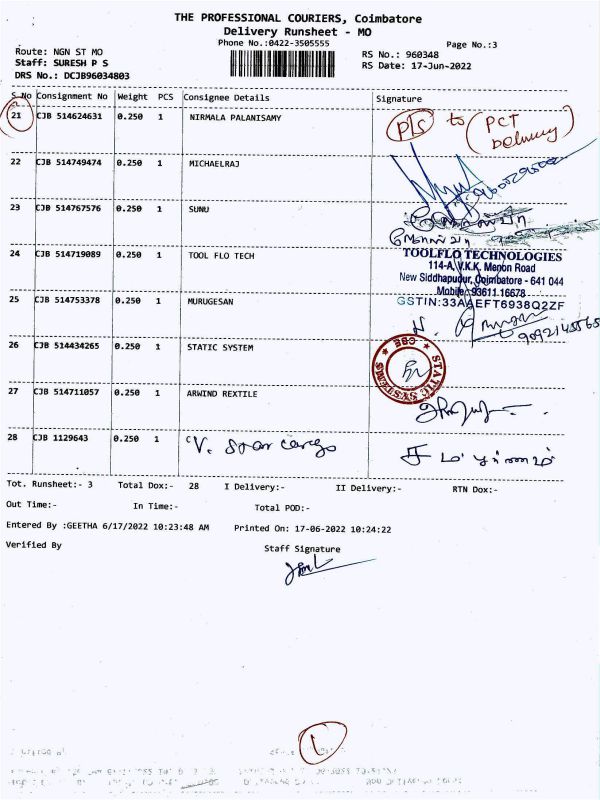 THE PROFESSIONAL COURIERS, Coimbatore
Delivery Runsheet - MO
Phone No.:0422-3505555
Page No.:3
Route: NGN ST MO
Staff: SURESH P S
DRS No.: DCJB96034803
RS No.: 960348
RS Date: 17-Jun-2022
S No Consignment No Weight PCS Consignee Details Signature
21 CJB 514624631 0.250 1 NIRMALA PALANISAMY
to (PCT
Delivery)
22 CJB 514749474 0.250 1 MICHAELRAJ
23 CJB 514767576 0.250 1 SUNU
24 CJB 514719089 0.250 1 TOOL FLO TECH
TOOLFLO TECHNOLOGIES
114-A, V.K.K. Menon Road
New Siddhapudur, Coimbatore - 641 044
Mobile: 93611 16678
GSTIN:33AAEFT6938Q2ZF
25 CJB 514753378 0.250 1 MURUGESAN
26 CJB 514434265 0.250 1 STATIC SYSTEM
STATIC SYSTEMS ★ CBE ★
27 CJB 514711057 0.250 1 ARWIND REXTILE
28 CJB 1129643 0.250 1 V. Star cargo
Tot. Runsheet:- 3 Total Dox:- 28 I Delivery:- II Delivery:- RTN Dox:-
Out Time:- In Time:- Total POD:-
Entered By :GEETHA 6/17/2022 10:23:48 AM Printed On: 17-06-2022 10:24:22
Verified By Staff Signature